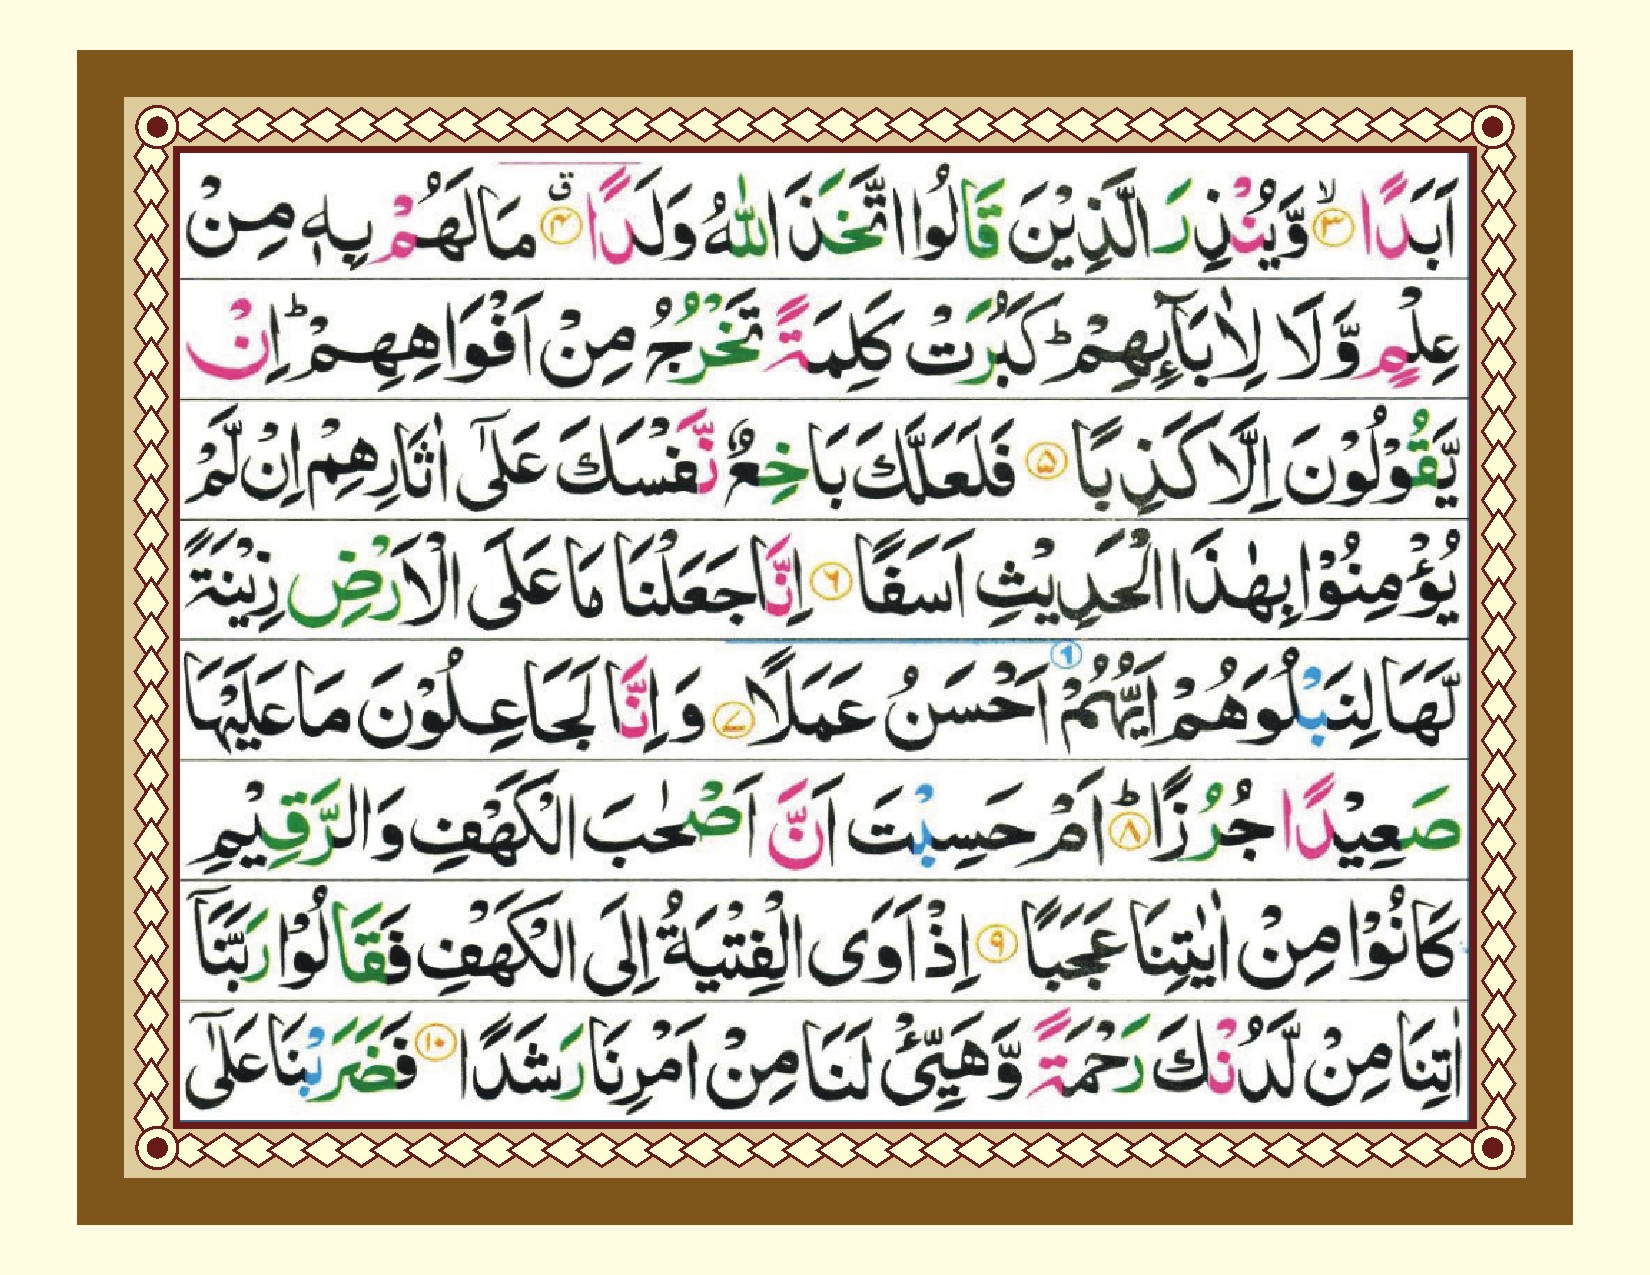 اَبَدًا ۙ﴿۳﴾ وَّيُنْذِرَ الَّذِيْنَ قَالُوا اتَّخَذَ اللّٰهُ وَلَدًا ۗ﴿۴﴾ مَا لَهُمْ بِهٖ مِنْ
عِلْمٍ وَّلَا لِاٰبَآئِهِمْ ؕ كَبُرَتْ كَلِمَةً تَخْرُجُ مِنْ اَفْوَاهِهِمْ ؕ اِنْ
يَّقُوْلُوْنَ اِلَّا كَذِبًا ﴿۵﴾ فَلَعَلَّكَ بَاخِعٌ نَّفْسَكَ عَلٰٓى اٰثَارِهِمْ اِنْ لَّمْ
يُؤْمِنُوْا بِهٰذَا الْحَدِيْثِ اَسَفًا ﴿۶﴾ اِنَّا جَعَلْنَا مَا عَلَى الْاَرْضِ زِيْنَةً
لَّهَا لِنَبْلُوَهُمْ اَيُّهُمْ اَحْسَنُ عَمَلًا ﴿۷﴾ وَ اِنَّا لَجَاعِلُوْنَ مَا عَلَيْهَا
صَعِيْدًا جُرُزًا ؕ﴿۸﴾ اَمْ حَسِبْتَ اَنَّ اَصْحٰبَ الْكَهْفِ وَالرَّقِيْمِ
كَانُوْا مِنْ اٰيٰتِنَا عَجَبًا ﴿۹﴾ اِذْ اَوَى الْفِتْيَةُ اِلَى الْكَهْفِ فَقَالُوْا رَبَّنَآ
اٰتِنَا مِنْ لَّدُنْكَ رَحْمَةً وَّهَيِّئْ لَنَا مِنْ اَمْرِنَا رَشَدًا ﴿۱۰﴾ فَضَرَبْنَا عَلٰٓى